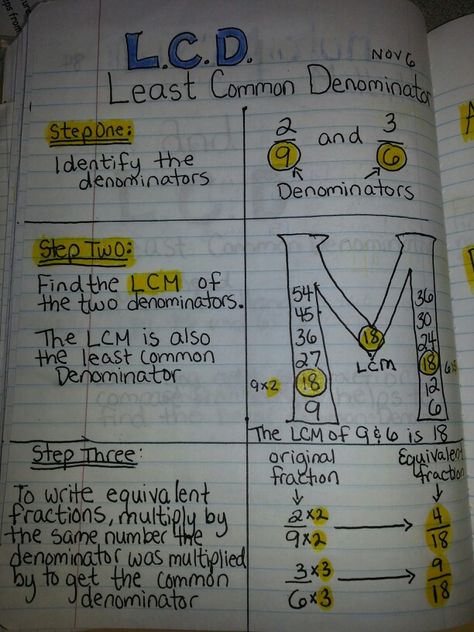 L.C.D.
Nov 6
Least Common Denominator
Step One:
Identify the
denominators
2/9 and 3/6
Denominators
Step Two:
Find the LCM of
the two denominators.
The LCM is also
the least common
Denominator
54
45
36
27
9x2 18
9
18
LCM
36
30
24
18
12
6
The LCM of 9 & 6 is 18
Step Three:
To write equivalent
fractions, multiply by
the same number the
denominator was multiplied
by to get the common
denominator
original
fraction
Equivalent
fraction
2 x2 / 9 x2 → 4/18
3 x3 / 6 x3 → 9/18